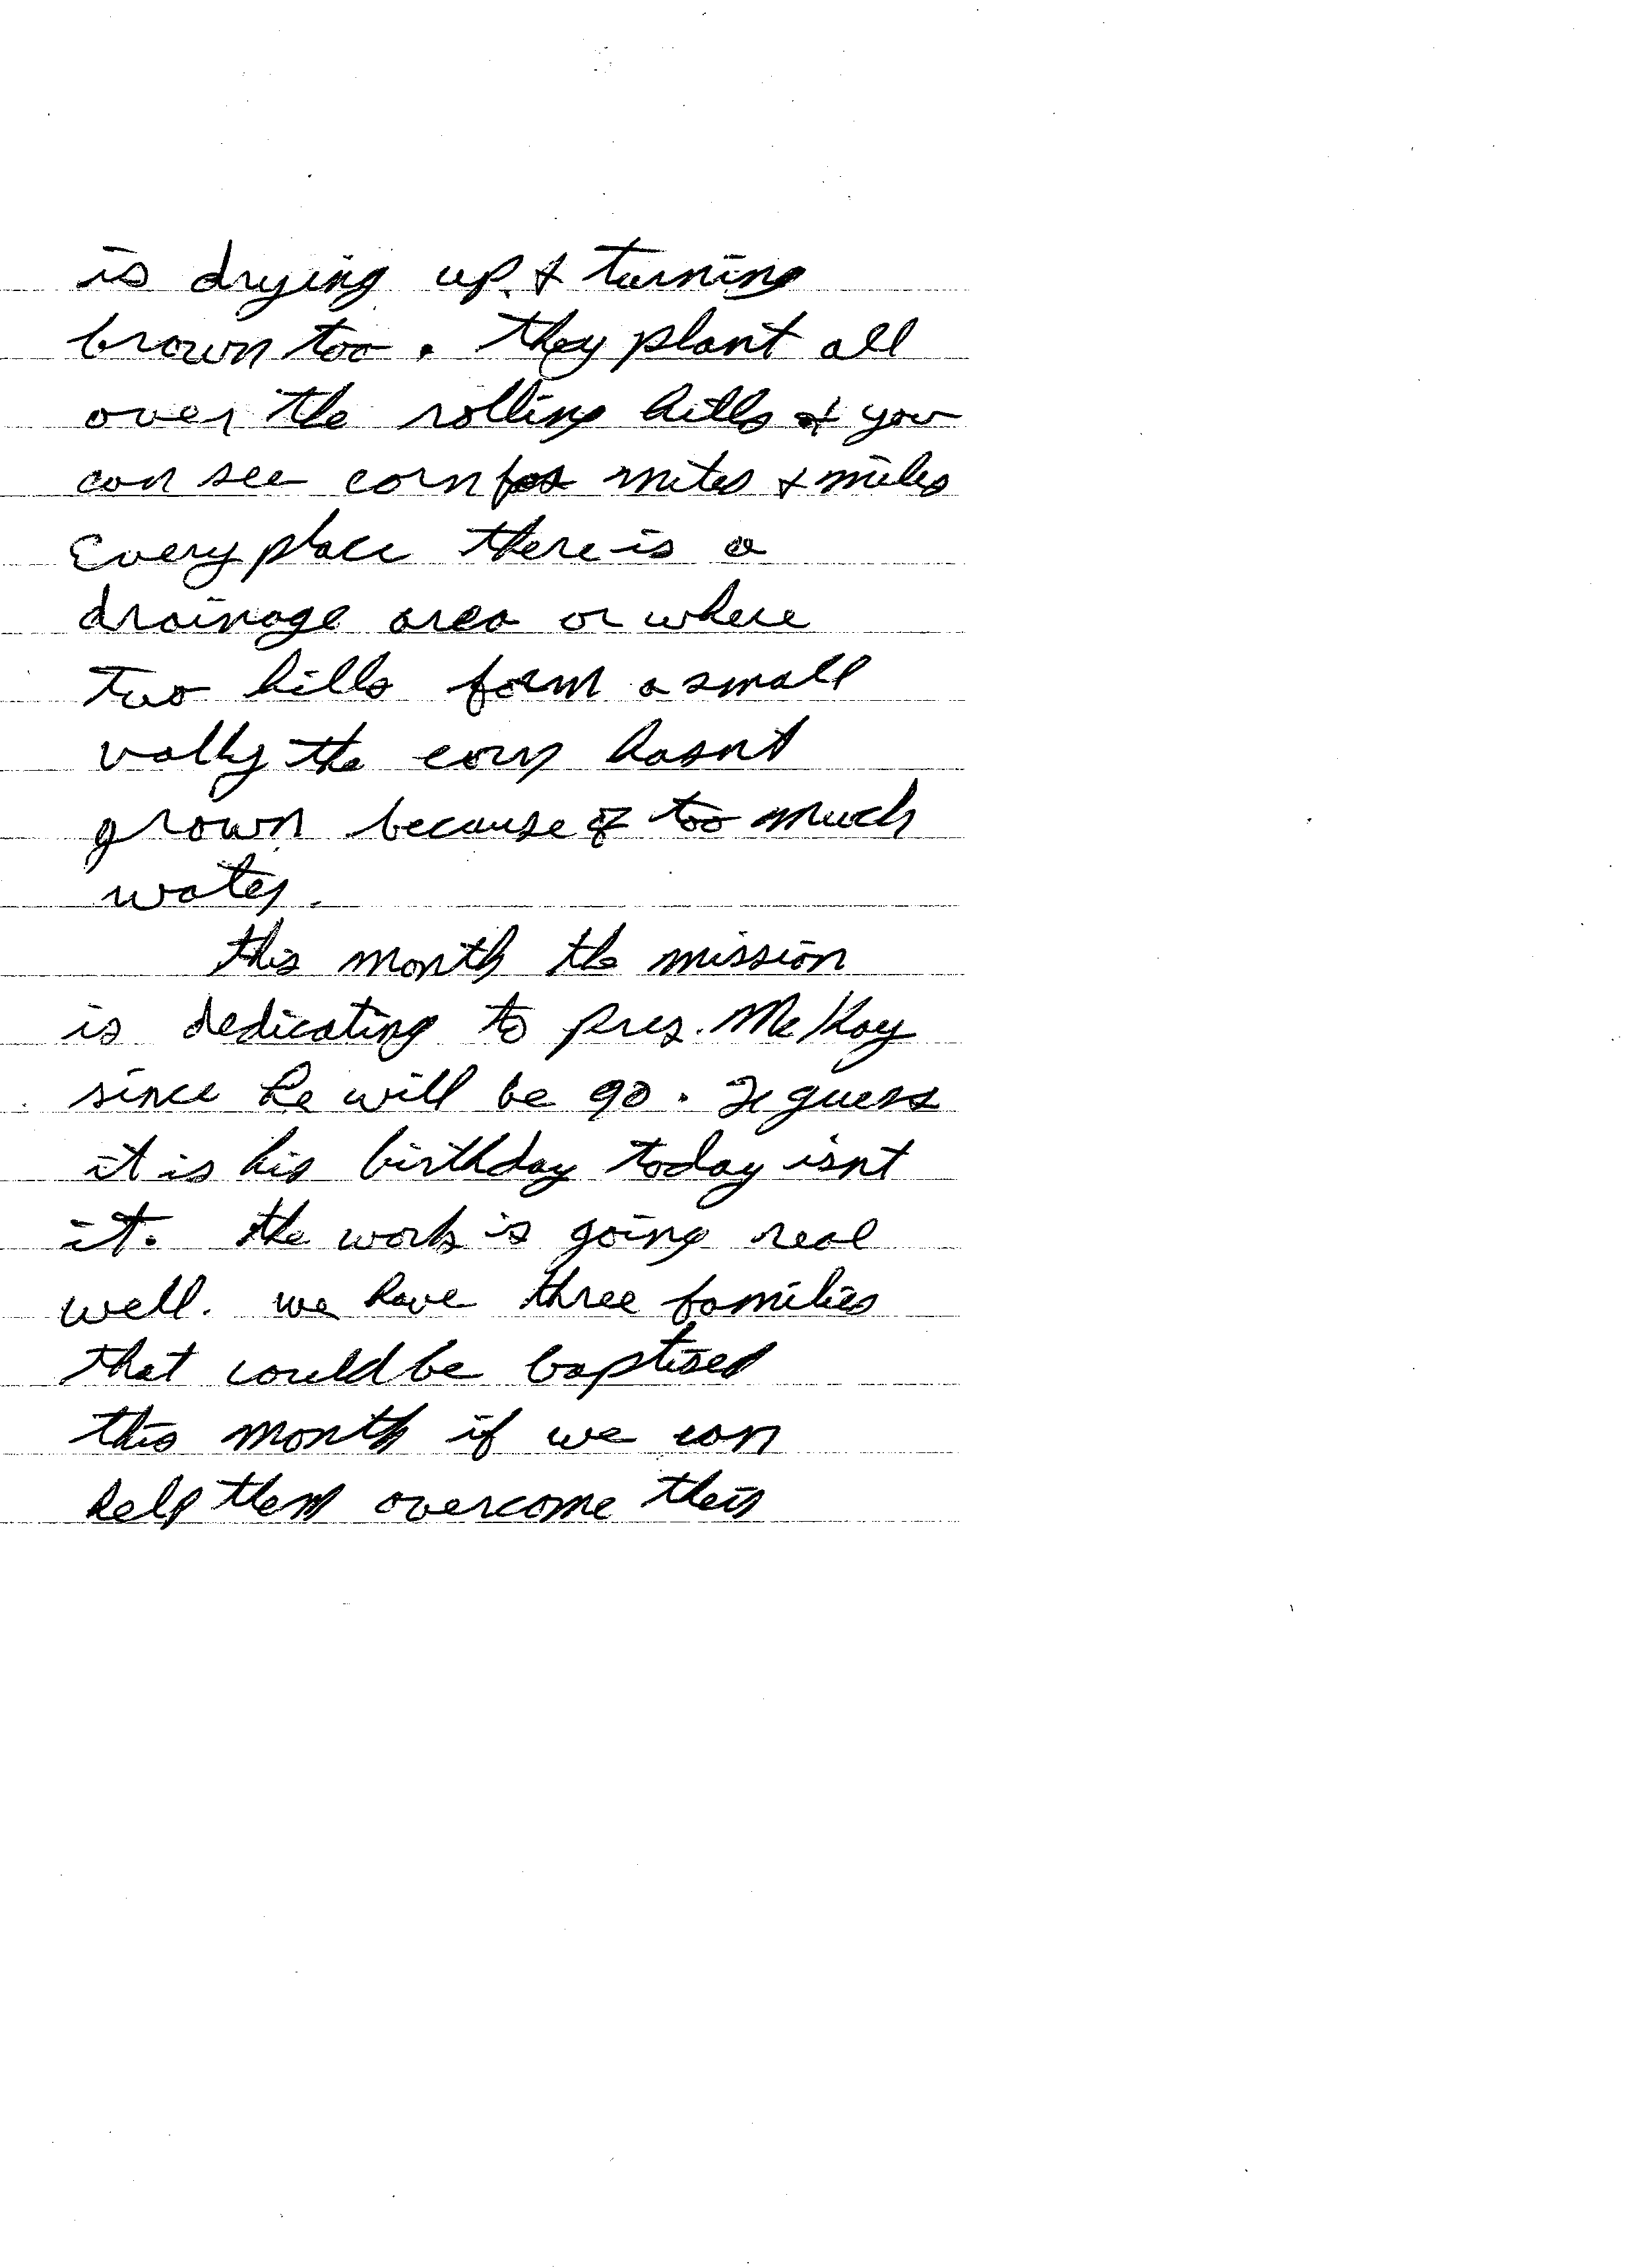 is drying up & turning
brown too. They plant all
over the rolling hills & you
can see corn for miles & miles
Every place there is a
drainage area or where
two hills form a small
vally the corn hasnt
grown because of too much
water.
this month the mission
is dedicating to pres. McKay
since he will be 90. I guess
it is his birthday today isnt
it. the work is going real
well. we have three families
that could be baptised
this month if we can
help them overcome their